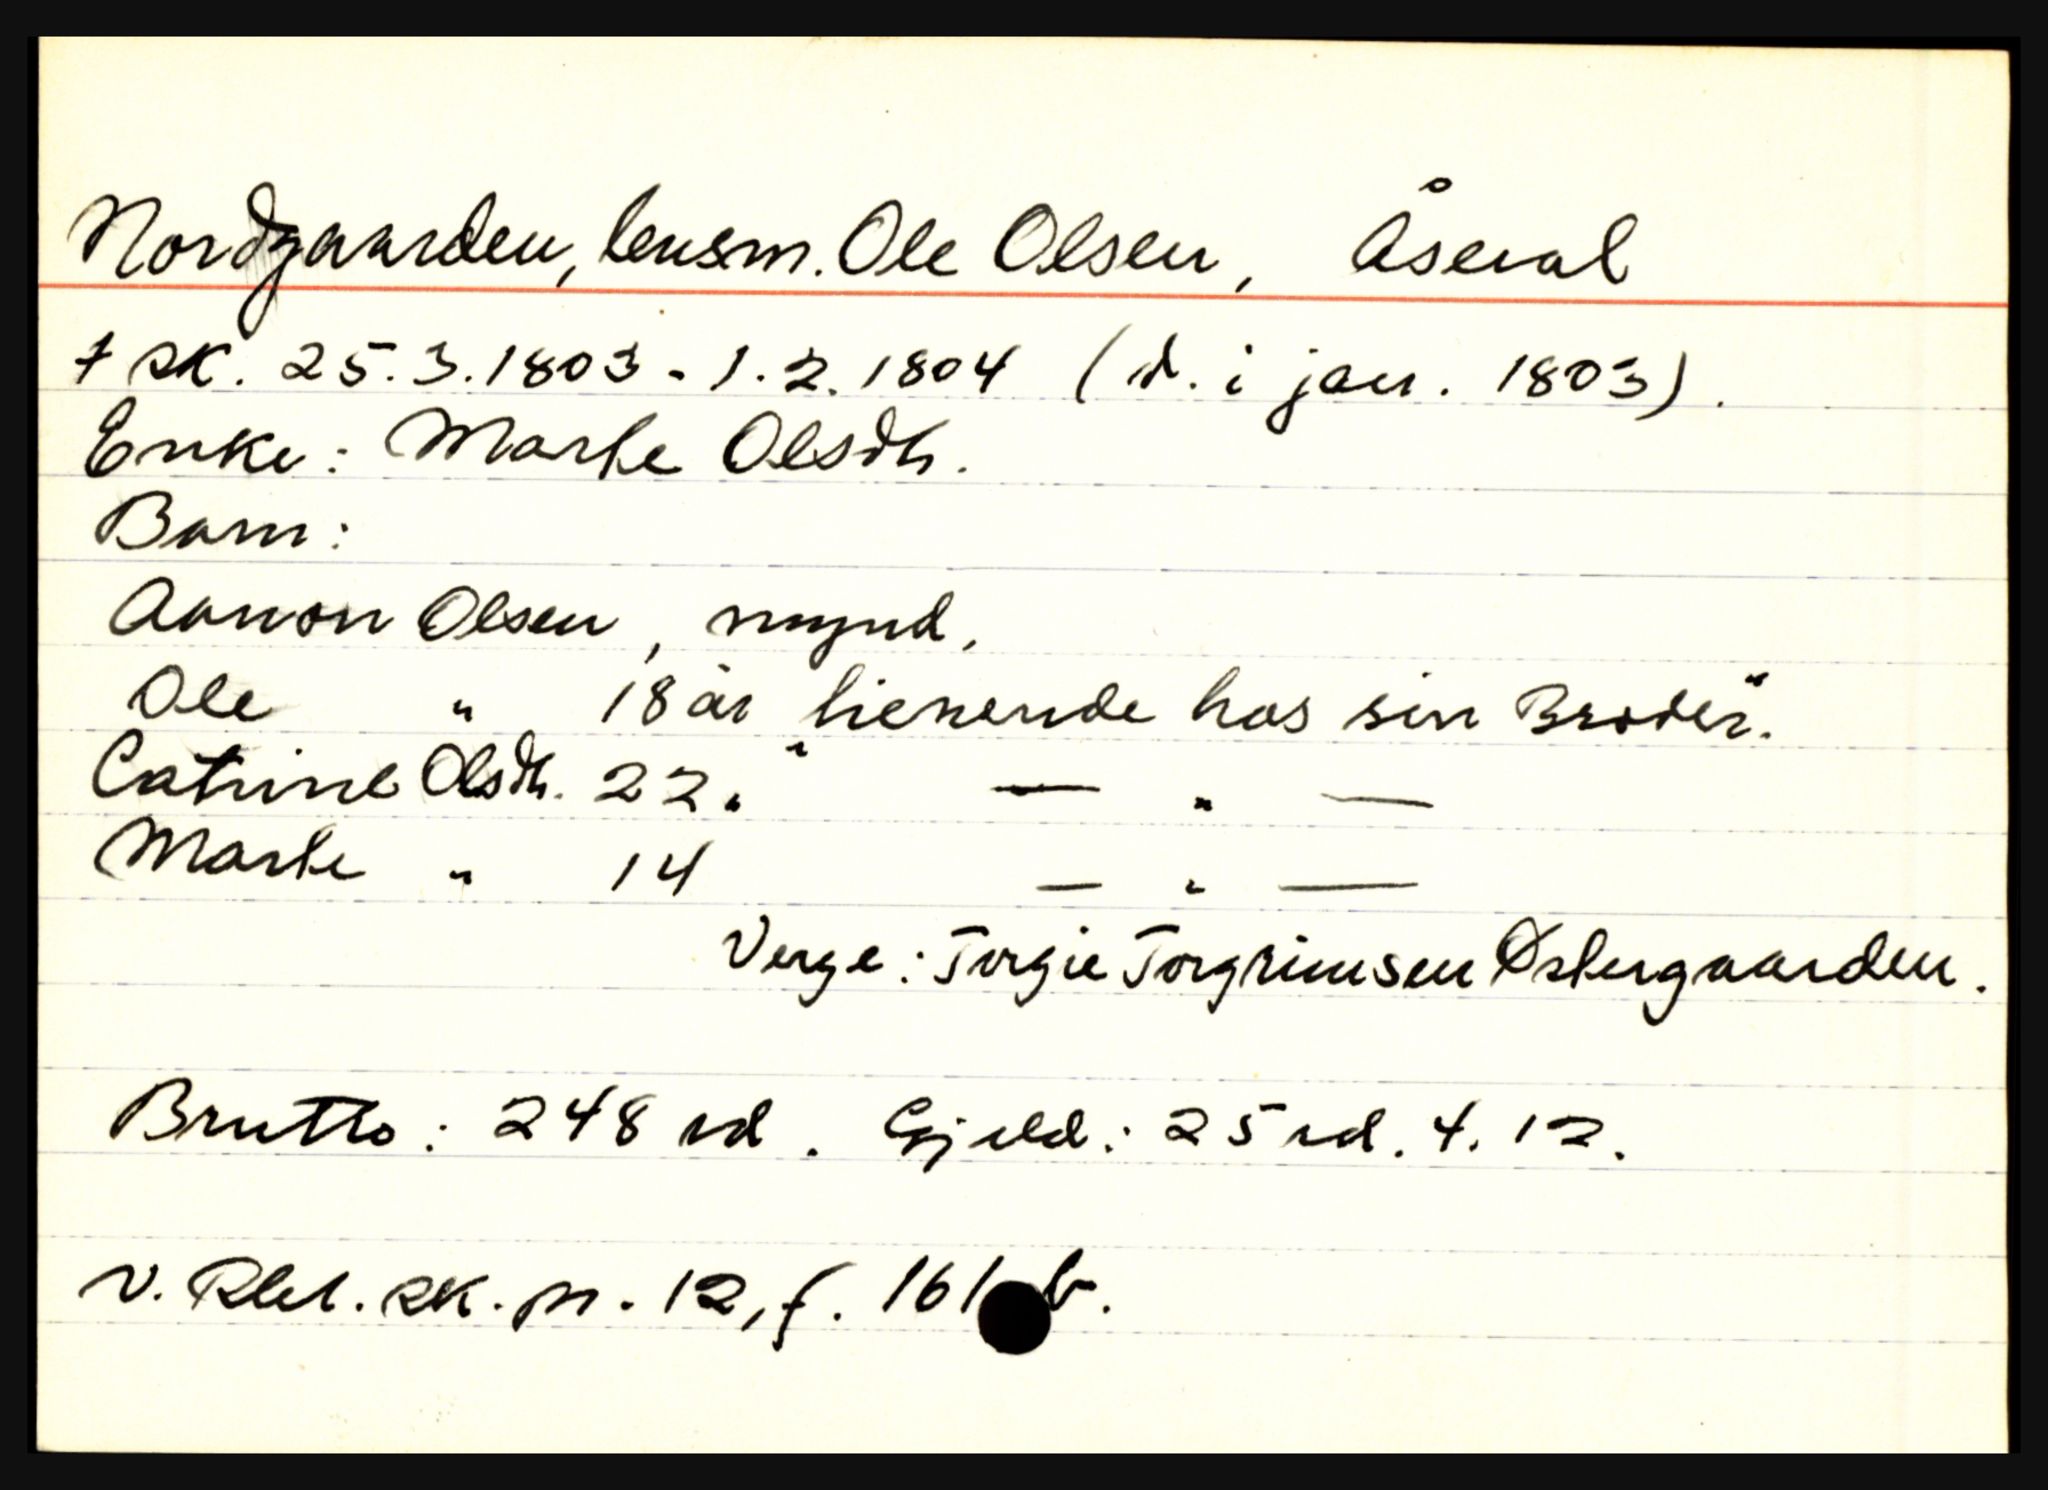 Nordgaarden, lensm. Ole Olsen, Åseral
† sk. 25.3.1803 - 1.2.1804 (d. i jan. 1803).
Enke: Marte Olsdtr.
Barn:
Aanon Olsen, mynd,
Ole " 18 år "tienende hos sin Broder".
Catrine Olsdtr. 22 " — " —
Marte " 14 — " —
Verge: Torgie Torgrimsen Østergaarden.
Brutto: 248 rd. Gjeld: 25 rd. 4. 12.
V. Rbl. sk. pr. 12, f. 161 b.